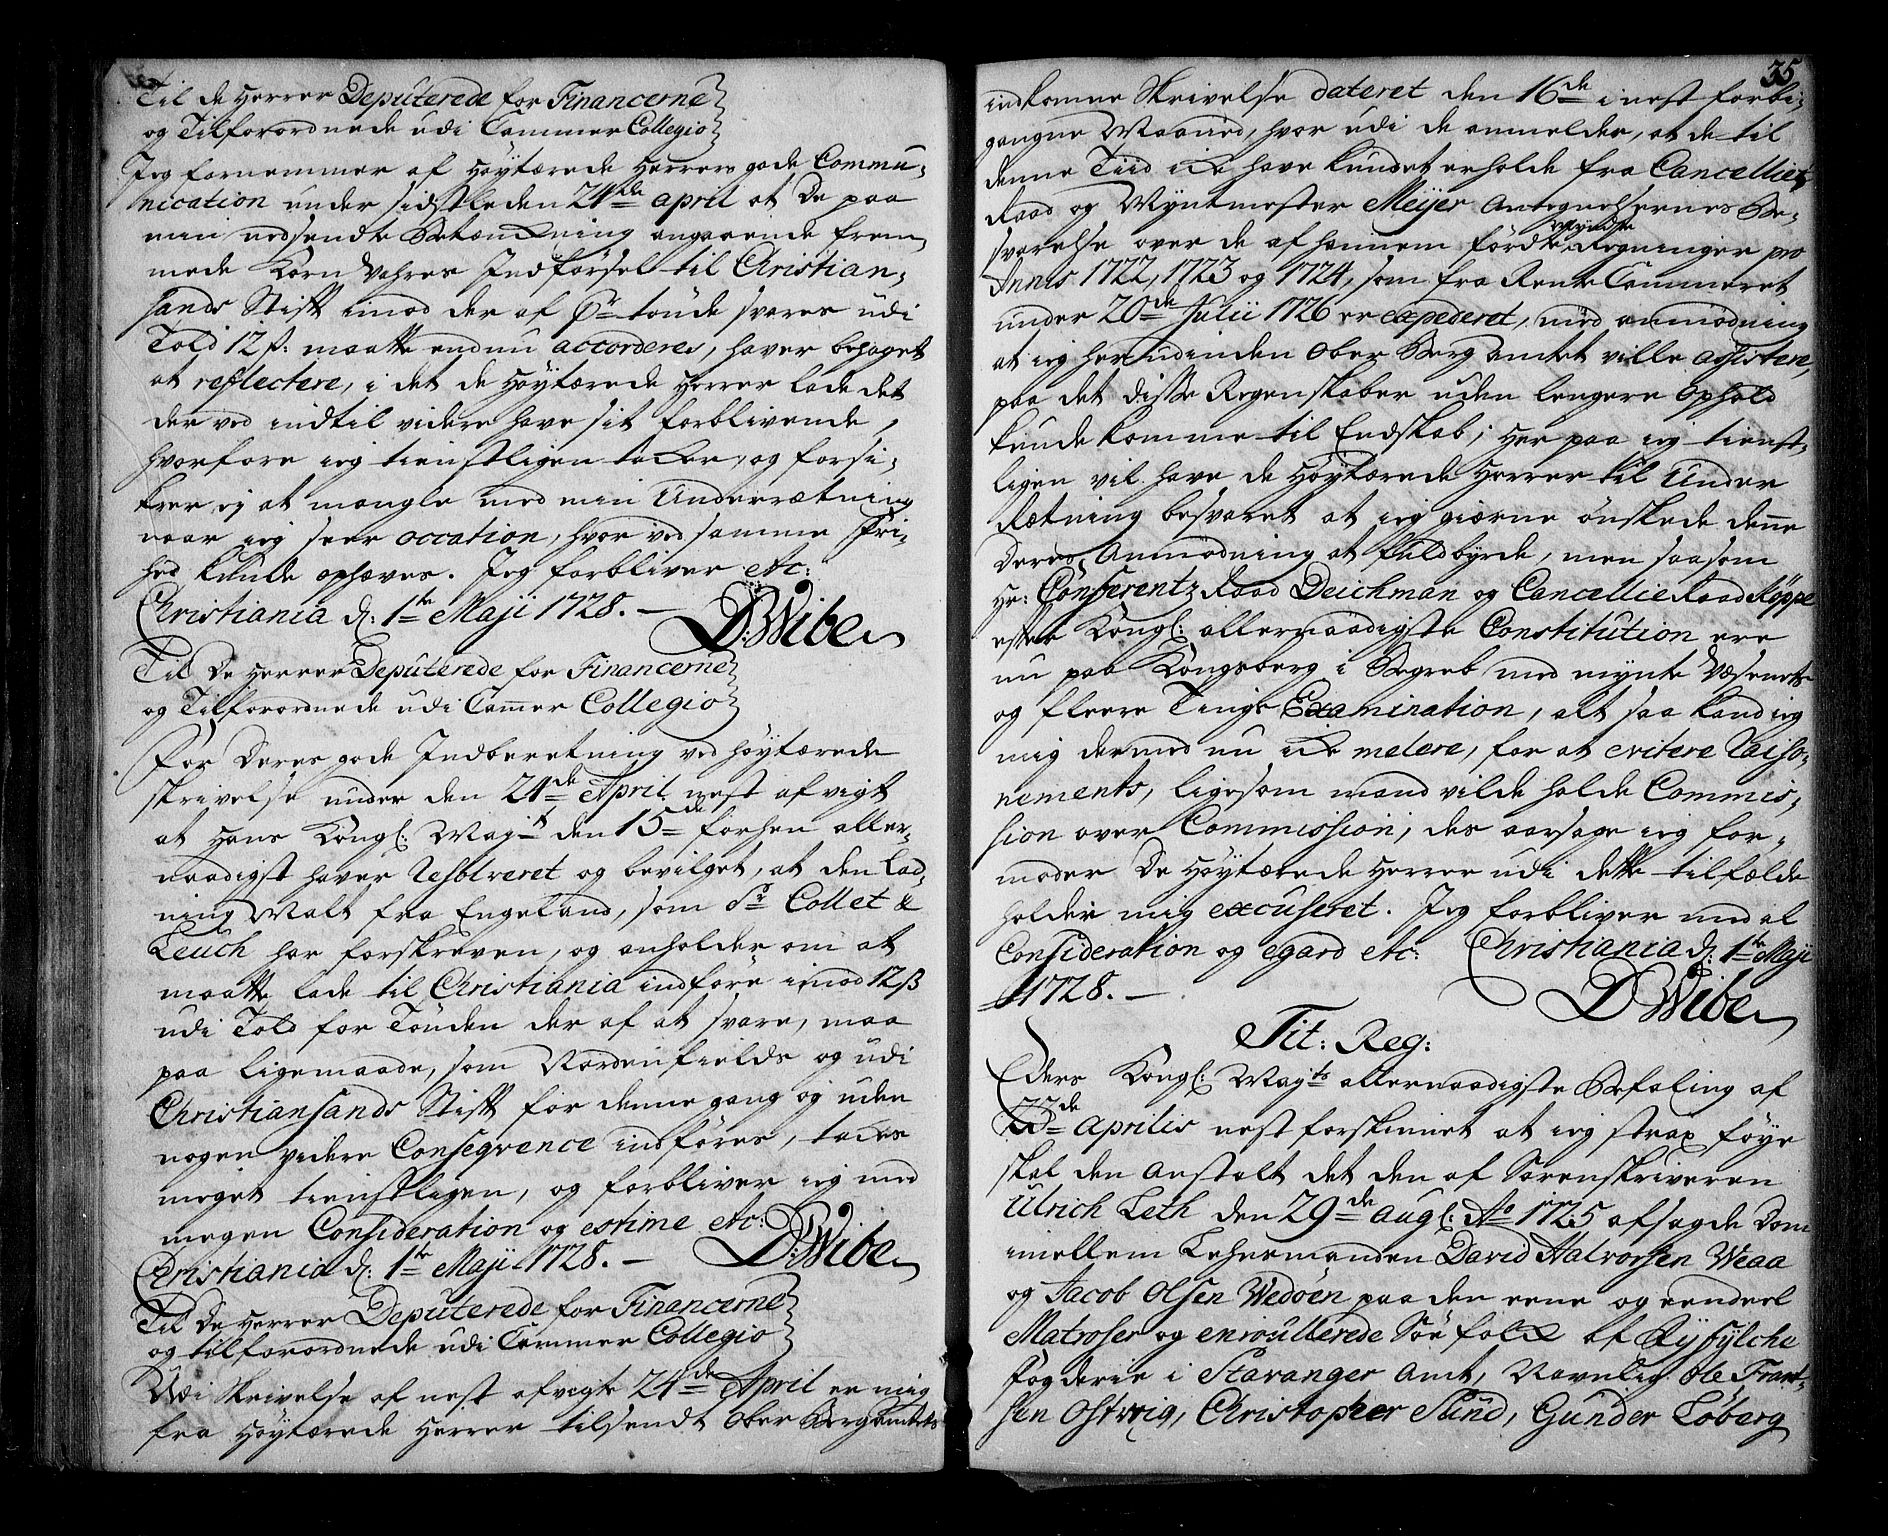 Til de Herrer Deputerede for Financerne
og Tilforordnede udi Cammer Collegio
Jeg fornemmer af Høytærede Herrers gode Commu-
nication under sidstleden 24de april at De paa
min nedsendte Betænkning angaaende frem-
mede Korn Vahres Indførsel til Christian-
sands Stift imod der af pr tønde svares udi
Told 12 s: maatte endnu accorderes, haver behaget
at reflectere, i det de Høytærede Herrer lade det
der ved indtil videre have sit forblivende,
hvorfore ieg tienstligen takker, og forsi-
krer ej at mangle med min Underrætning
naar ieg seer occation, hvor ved samme Fri-
hed kunde ophæves. Jeg forbliver etc:
Christiania d: 1te Maji 1728. —
D: Wibe
Til De Herrer Deputerede for Financerne
og Tilforordnede udi Camer Collegio
For Deres gode Indberetning ved høytærede
skrivelse under den 24de April nest afvigt
at Hans Kongl: Mayts den 15de forhen aller-
naadigst haver Resolveret og bevilget, at den Lad-
ning Malt fra Engeland, som Sr Collet &
Leuch har forskreven, og anholder om at
maatte lade til Christiania indføre imod 12 s
udi Told for Tønden der af at svare, maa
paa ligemaade, som Nordenfields og udi
Christiansands Stift for denne gang og uden
nogen videre Conseqvence indføres, takes
meget tienstligen, og forbliver ieg med
megen Consideration og estime etc:
Christiania d: 1te Maji 1728. —
D: Wibe
Til De Herrer Deputerede for Financerne
og tilforordnede udi Cammer Collegio
Udi Skrivelse af nest afvigte 24de April er mig
fra Høytærede Herrer tilsendt Ober Bergamtets
35
indkomne Skrivelse dateret den 16de i nest forbi-
gangne Maaned, hvor udi de anmelder, at de til
denne Tiid icke have kundet erholde fra Cancellie
Raad og Myntmester Meyer Antegnelsernes Be-
svarelse over de af hannem førdte Mynte Regninger pro
Annis 1722, 1723 og 1724, som fra Rente Cammeret
under 20de Julii 1726 er expederet, med anmodning
at ieg her udinden Ober Berg Amtet ville assistere,
paa det disse Regenskaber uden lengere Ophold
kunde komme til Endskab; Her paa ieg tienst-
ligen vil have de Høytærede Herrer til Under
Rætning besvaret at ieg gierne ønskede denne
Deres Anmodning at fuldbyrde, men saasom
Hr: Conferentz Raad Deichman og Cancellie Raad Køppe
efter Kongl: allernaadigste Constitution ere
nu paa Kongsberg i Begreb med mynte Væsenets
og fleere Tings Examination, alt saa kand ieg
mig dermed nu icke melere, for at evitere Raiso-
nements, ligesom mand vilde holde Commis-
sion over Commission; des aarsage ieg for-
moder De Høytærede Herrer udi dette tilfælde
holder mig excuseret. Jeg forbliver med al
Consideration og egard etc: Christiania d: 1te Maji
1728. —
D Wibe
Tit: Reg:
Eders Kongl: Mayts allernaadigste Befaling af
23de Aprilis nest forskinnet at ieg strax føye
skal den Anstalt det den af Sorenskriveren
Ulrich Leth den 29de Aug: Ao 1725 afsagde Dom
imellem Lehnsmanden David Halvorsen Weaa
og Jacob Olsen Wedøen paa den eene og eendeel
Matroser og enroullerede Søe folck af Ryfylche
Fogderie i Stavanger Amt, Navnlig Ole Frant-
sen Ostvig, Christopher Sund, Gunder Løberg